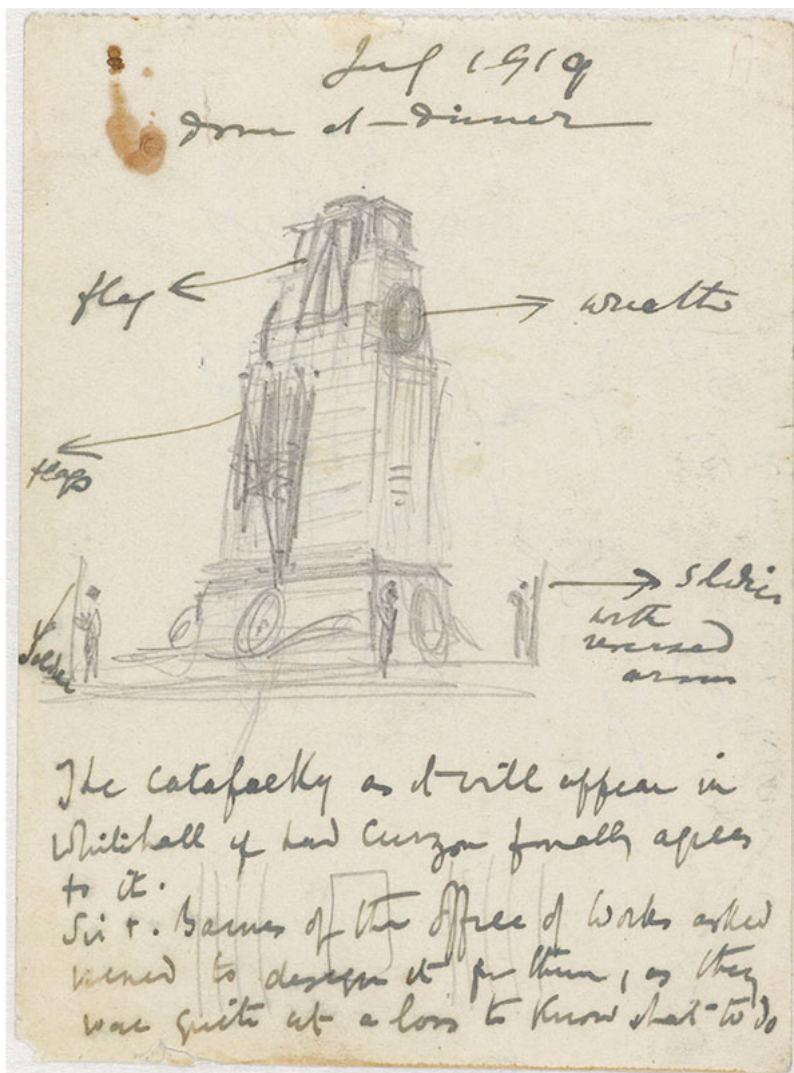 July 1919
Done at dinner
flag
wreath
flags
Soldier
Soldier
with
reversed
arms
The Catafalky as it will appear in
Whitehall if Lord Curzon finally agrees
to it.
Sir F. Baines of the Office of Works asked
to design it for them, as they
were quite at a loss to know what to do